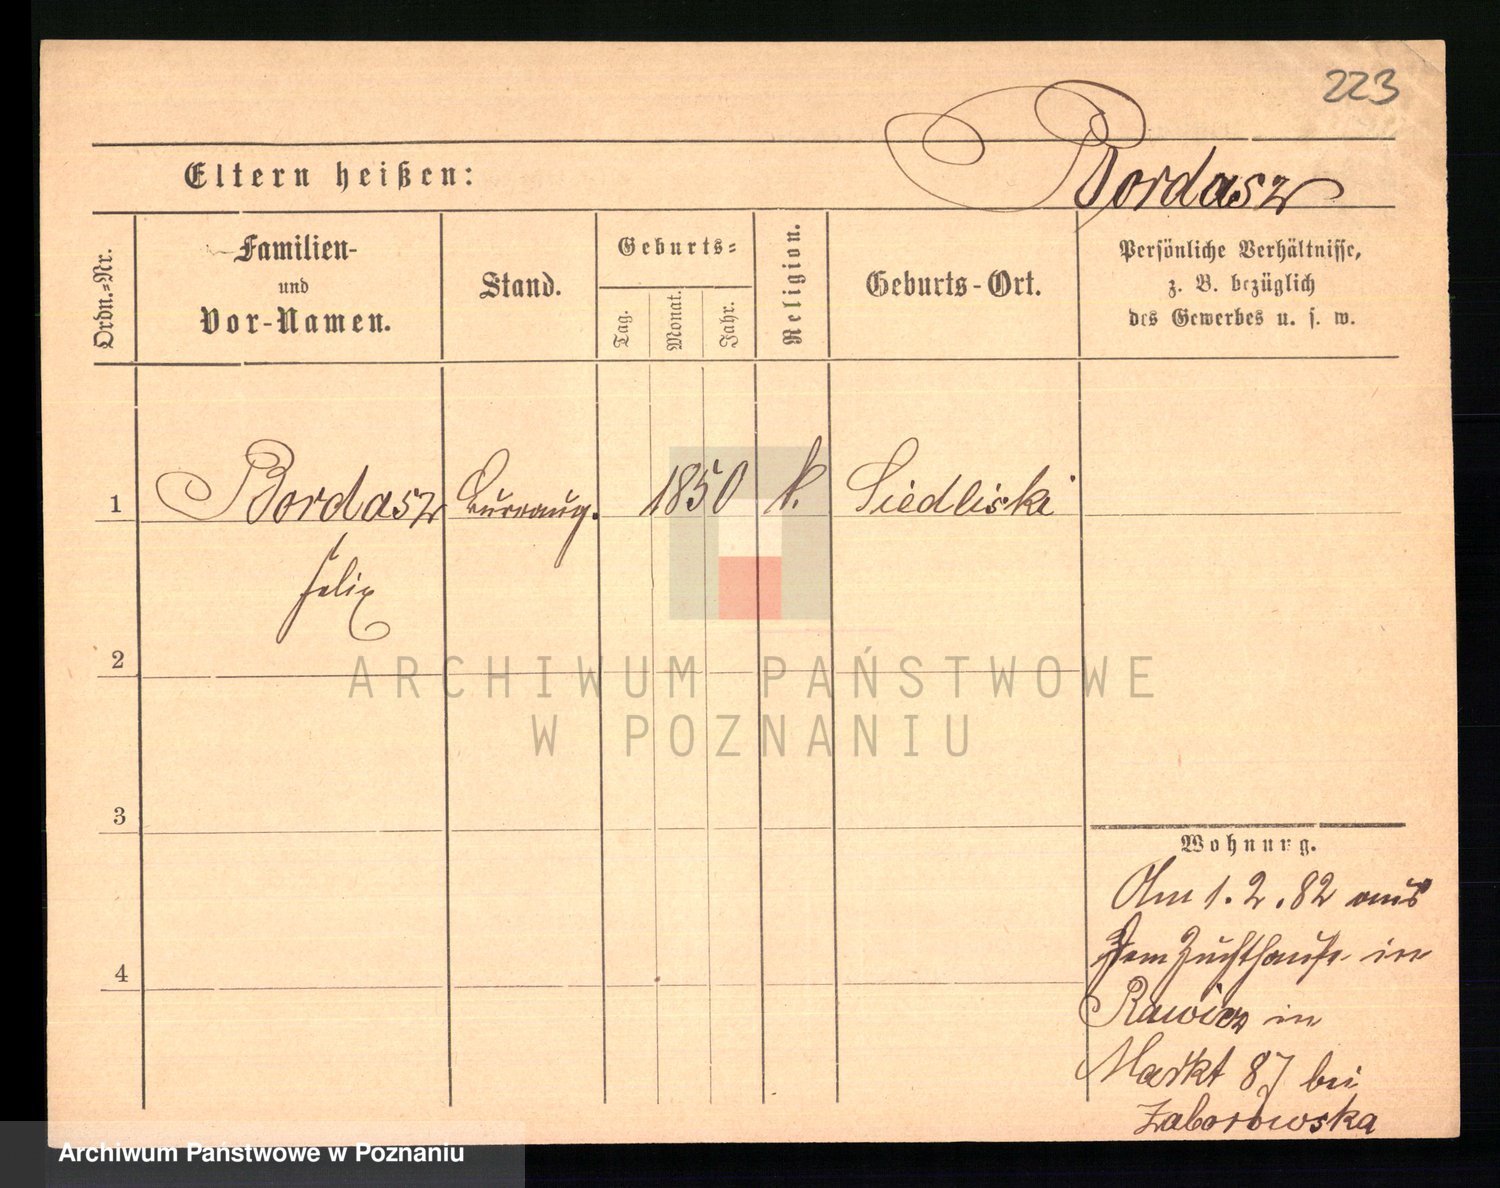 223
Bordasz
Eltern heißen:
Ordn.-Nr.
Familien-
und
Vor-Namen.
Stand.
Geburts-
Tag.
Monat.
Jahr.
Religion.
Geburts-Ort.
Persönliche Verhältnisse,
z. B. bezüglich
des Gewerbes u. s. w.
1
Bordasz
1850
k.
Siedliski
Felix
2
ARCHIWUM PAŃSTWOWE
W POZNANIU
3
Wohnung.
Am 1.2.82 aus
dem Zuchthause in
4
Rawicz in
Markt 87 bei
Zaborowska
Archiwum Państwowe w Poznaniu